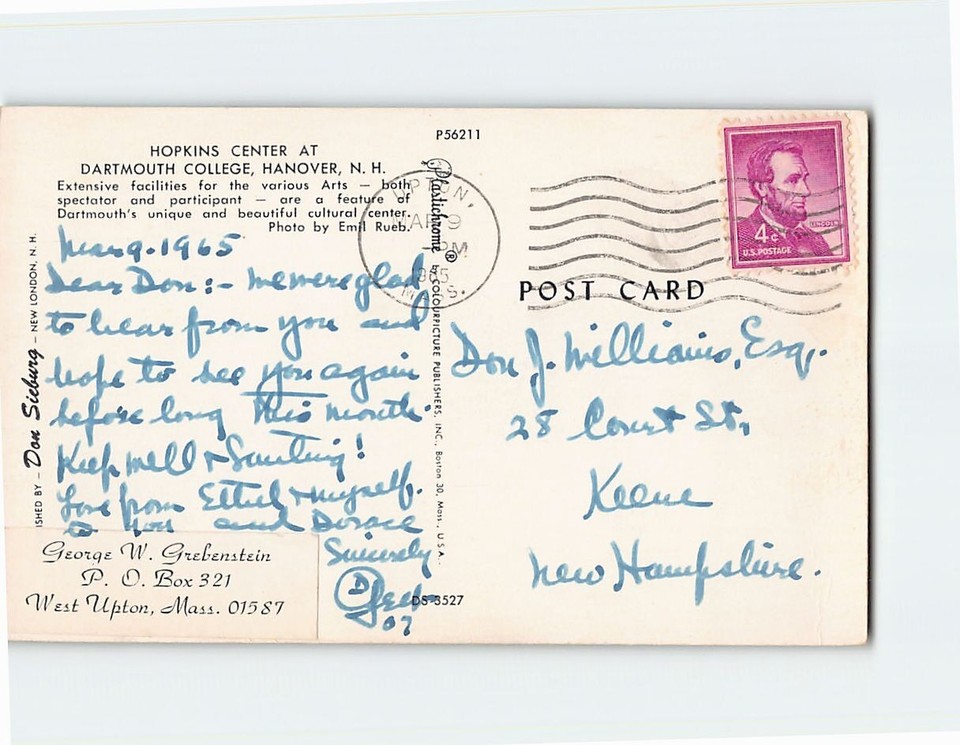 P56211
HOPKINS CENTER AT
DARTMOUTH COLLEGE, HANOVER, N. H.
Extensive facilities for the various Arts — both
spectator and participant — are a feature of
Dartmouth's unique and beautiful cultural center.
Photo by Emil Rueb.
Mar 9. 1965
Dear Don :- We were glad
to hear from you and
hope to see you again
before long this month.
Keep well & Smiling!
Love from Ethel & myself.
to you and
Sincerely
07
George W. Grebenstein
P. O. Box 321
West Upton, Mass. 01587
ISHED BY — Don Sieburg — NEW LONDON, N. H.
Plastichrome ® by COLOURPICTURE PUBLISHERS, INC., Boston 30, Mass., U.S.A.
DS-3527
UPTON,
MAR 9
PM
1965
MASS.
LINCOLN
4¢
U.S. POSTAGE
POST CARD
Don J. Williams, Esq.
28 Court St.,
Keene
New Hampshire.